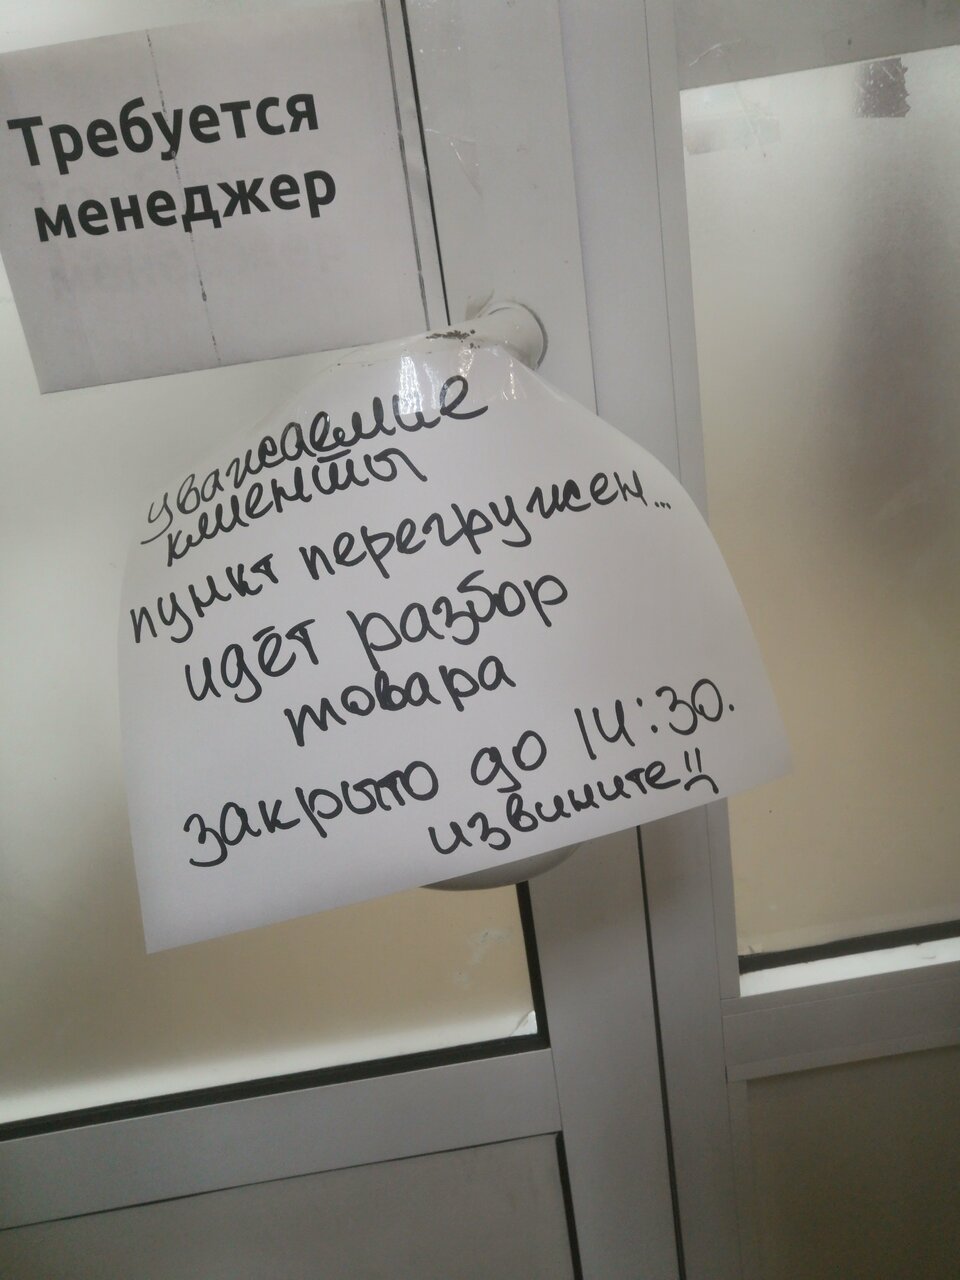 Требуется
менеджер
уважаемые
клиенты
пункт перегружен...
идёт разбор
товара
закрыто до 14:30.
извините!!